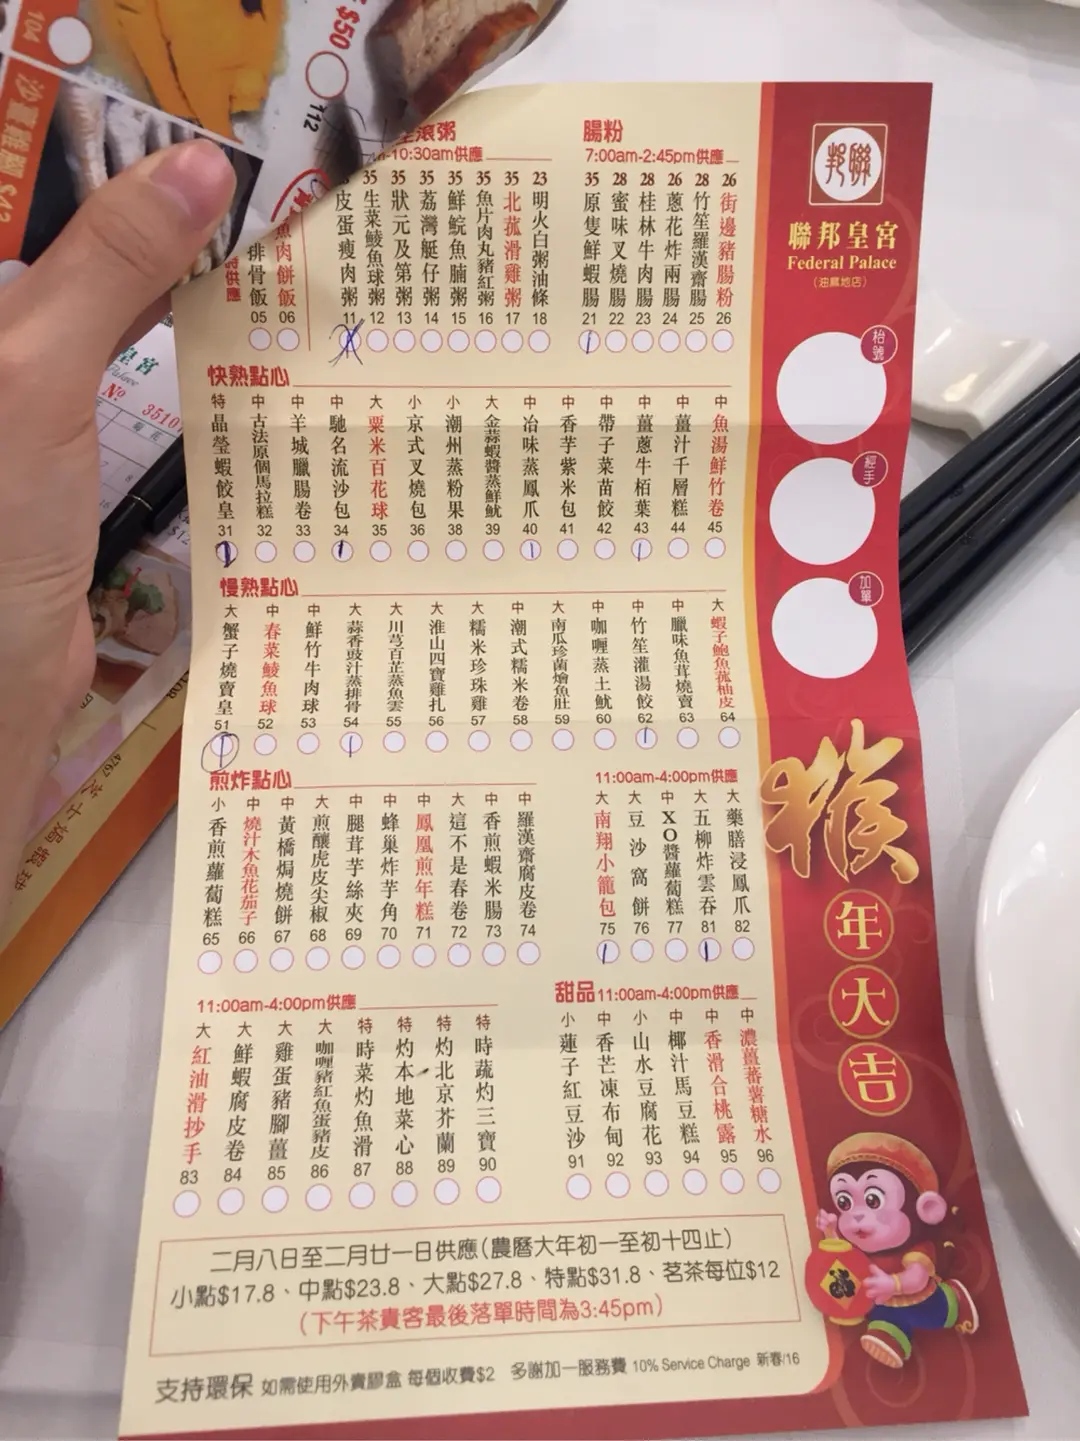 104
$50
112
沙薑雞腳 $42
滾粥
-10:30am供應
35 皮蛋瘦肉粥 11
35 生菜鯪魚球粥 12
35 狀元及第粥 13
35 荔灣艇仔粥 14
35 鮮鯇魚腩粥 15
35 魚片肉丸豬紅粥 16
35 北菰滑雞粥 17
23 明火白粥油條 18
排骨飯 05
魚肉餅飯 06
腸粉
7:00am-2:45pm供應
35 原隻鮮蝦腸 21
28 蜜味叉燒腸 22
28 桂林牛肉腸 23
26 蔥花炸兩腸 24
28 竹笙羅漢齋腸 25
26 街邊豬腸粉 26
快熟點心
特 晶瑩蝦餃皇 31
中 古法原個馬拉糕 32
中 羊城臘腸卷 33
中 馳名流沙包 34
大 粟米百花球 35
小 京式叉燒包 36
小 潮州蒸粉果 38
大 金蒜蝦醬蒸鮮魷 39
中 冶味蒸鳳爪 40
中 香芋紫米包 41
中 帶子菜苗餃 42
中 薑蔥牛栢葉 43
中 薑汁千層糕 44
中 魚湯鮮竹卷 45
慢熟點心
大 蟹子燒賣皇 51
中 春菜鯪魚球 52
中 鮮竹牛肉球 53
大 蒜香豉汁蒸排骨 54
大 川芎白芷蒸魚雲 55
大 淮山四寶雞扎 56
大 糯米珍珠雞 57
中 潮式糯米卷 58
大 南瓜珍菌燴魚肚 59
中 咖喱蒸土魷 60
中 竹笙灌湯餃 62
中 臘味魚茸燒賣 63
大 蝦子鮑魚菰柚皮 64
煎炸點心
小 香煎蘿蔔糕 65
中 燒汁木魚花茄子 66
中 黃橋焗燒餅 67
大 煎釀虎皮尖椒 68
中 腿茸芋絲夾 69
中 蜂巢炸芋角 70
中 鳳凰煎年糕 71
大 這不是春卷 72
中 香煎蝦米腸 73
中 羅漢齋腐皮卷 74
11:00am-4:00pm供應
大 南翔小籠包 75
大 豆沙窩餅 76
中 XO醬蘿蔔糕 77
大 五柳炸雲吞 81
大 藥膳浸鳳爪 82
11:00am-4:00pm供應
大 紅油滑抄手 83
大 鮮蝦腐皮卷 84
大 雞蛋豬腳薑 85
大 咖喱豬紅魚蛋豬皮 86
特 時菜灼魚滑 87
特 灼本地菜心 88
特 灼北京芥蘭 89
特 時蔬灼三寶 90
甜品 11:00am-4:00pm供應
小 蓮子紅豆沙 91
中 香芒凍布甸 92
小 山水豆腐花 93
中 椰汁馬豆糕 94
中 香滑合桃露 95
中 濃薑蕃薯糖水 96
二月八日至二月廿一日供應(農曆大年初一至初十四止)
小點$17.8、中點$23.8、大點$27.8、特點$31.8、茗茶每位$12
(下午茶貴客最後落單時間為3:45pm)
支持環保 如需使用外賣膠盒 每個收費$2 多謝加一服務費 10% Service Charge 新春/16
邦聯
聯邦皇宮
Federal Palace
(油麻地店)
枱號
經手
加單
猴
年
大
吉
皇宮
Palace
No 3510